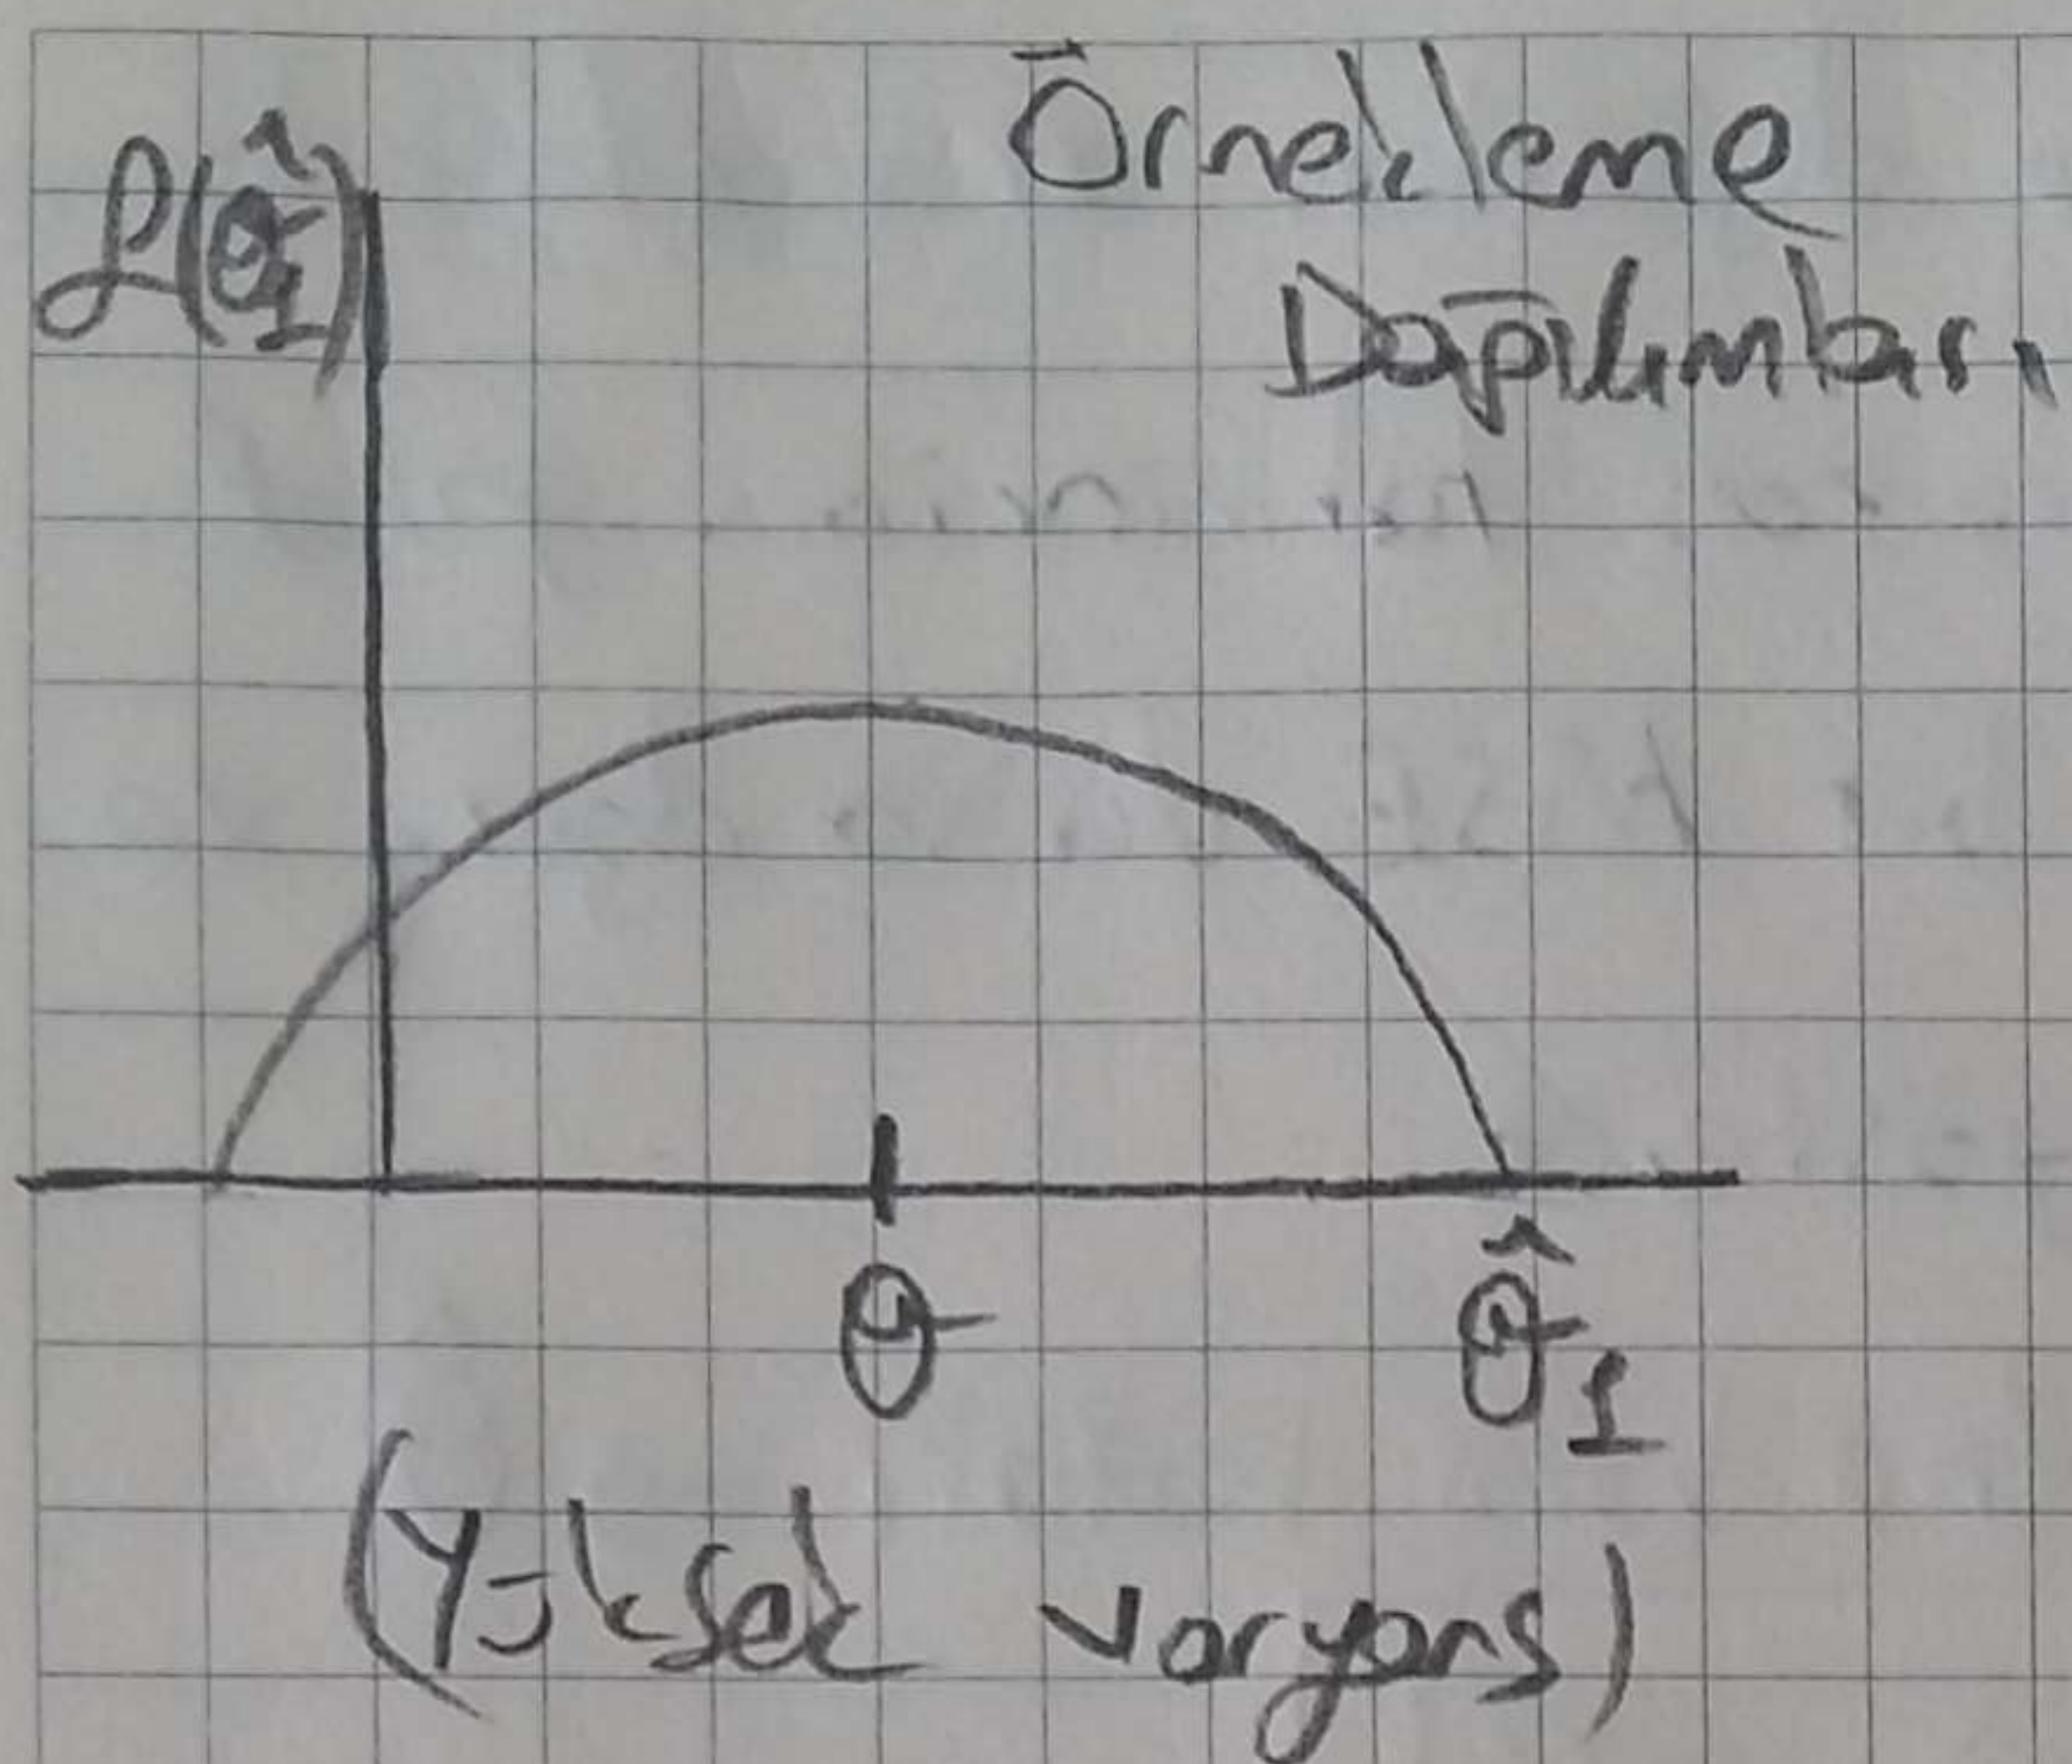 f(θ̂₁)
Örnekleme
Dağılımları
θ
θ̂₁
(Yüksek varyans)